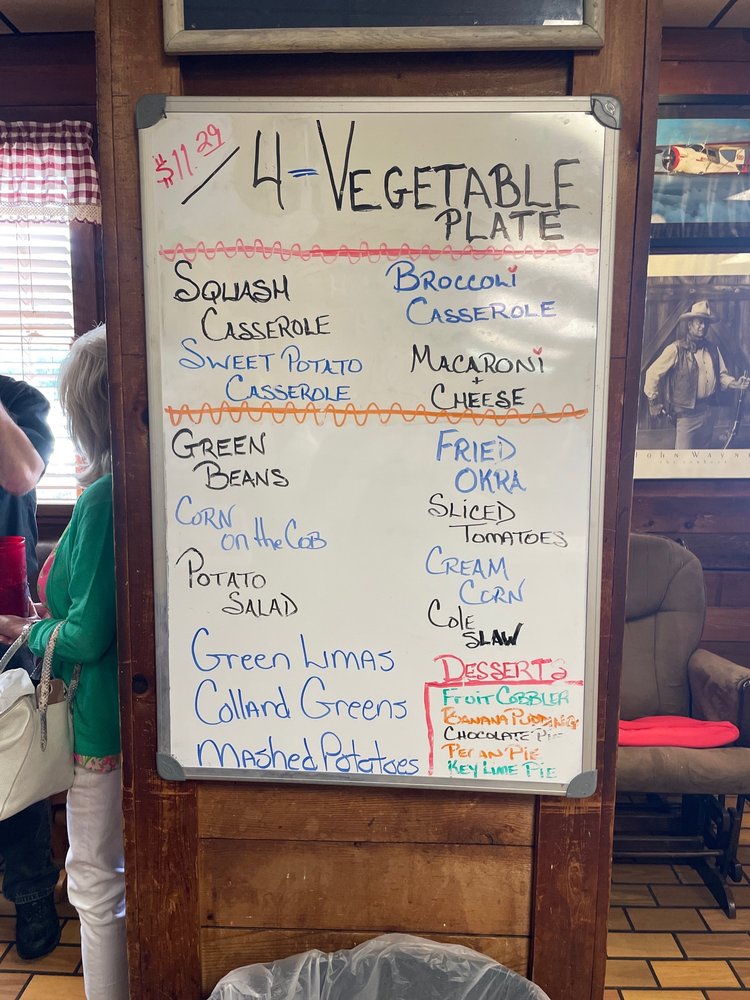 $11.29 / 4-VEGETABLE
PLATE
SQUASH
CASSEROLE
SWEET POTATO
CASSEROLE
BROCCOLI
CASSEROLE
MACARONI
+
CHEESE
GREEN
BEANS
CORN
ON the COB
POTATO
SALAD
Green Limas
Collard Greens
Mashed Potatoes
FRIED
OKRA
SLICED
TOMATOES
CREAM
CORN
COLE
SLAW
DESSERTS
FRUIT COBBLER
BANANA PUDDING
CHOCOLATE PIE
PECAN PIE
KEY LIME PIE
JOHN WAYNE